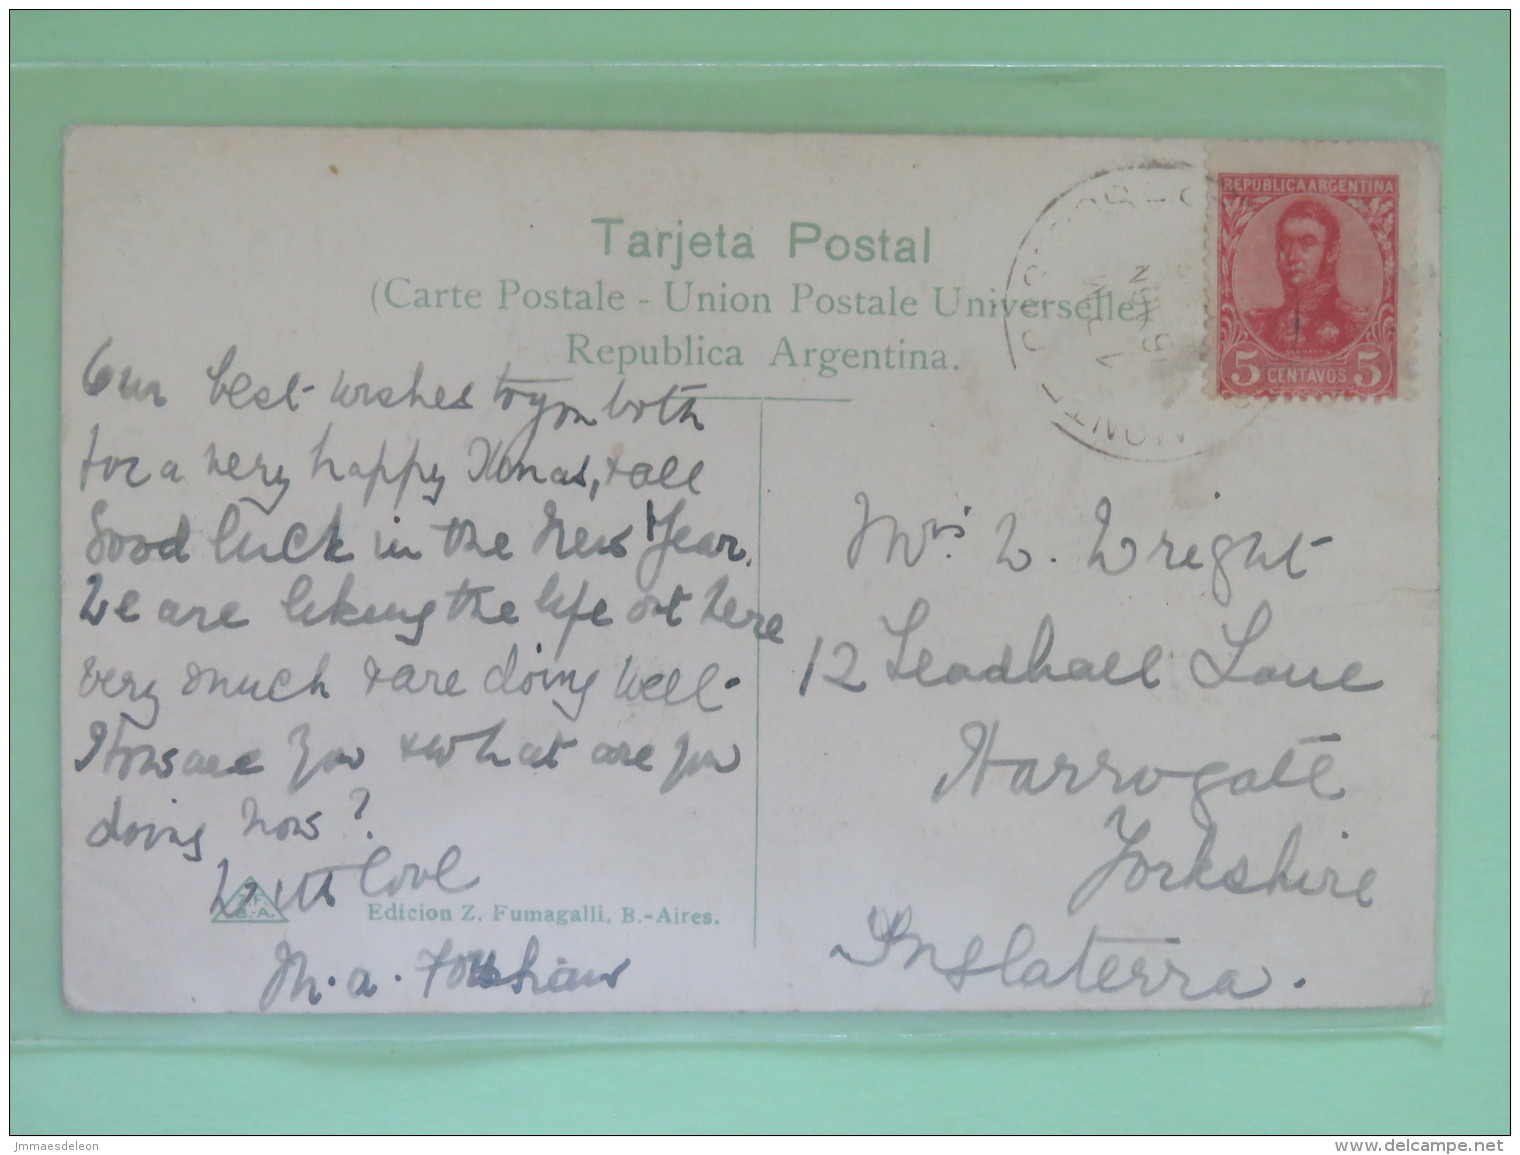 Tarjeta Postal
(Carte Postale - Union Postale Universelle)
Republica Argentina.
REPUBLICA ARGENTINA
5 CENTAVOS 5
Our best wishes to you both
for a very happy Xmas, & all
Good luck in the New Year.
We are liking the life out here
very much & are doing well.
How are you & what are you
doing now?
With love
M. A.
Edicion Z. Fumagalli. B.-Aires.
Mrs W. Wright
12 Leadhall Lane
Harrogate
Yorkshire
Inglaterra.
Jmmaesdeleon
www.delcampe.net